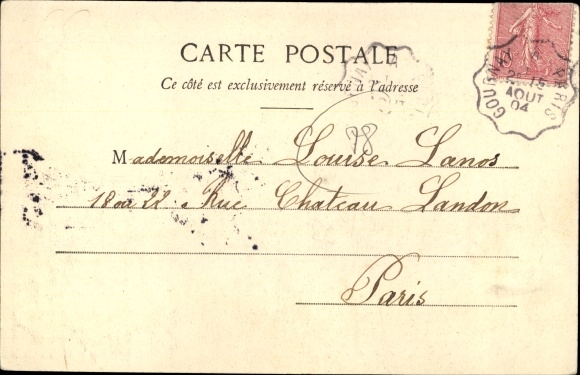 CARTE POSTALE
Ce côté est exclusivement réservé à l'adresse
GOURNAY PARIS
15
AOUT
04
98
Mademoiselle Louise Lanos
18 ou 22 Rue Chateau Landon
Paris